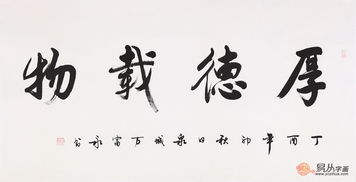 厚德載物
丁酉年秋日泉城永书
易从字画